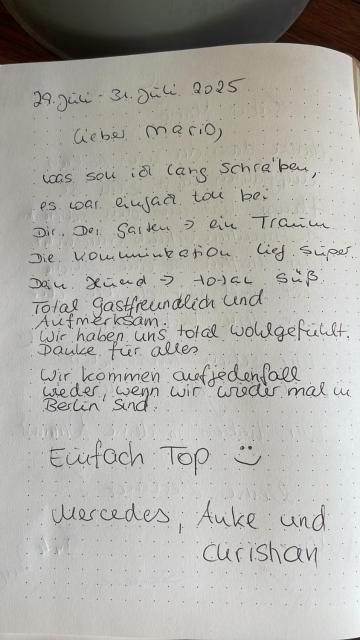 29. Juli - 31. Juli 2025
Lieber Mario,
was soll ich lang schreiben,
es war einfach toll bei
Dir. Der Garten → ein Traum
Die Kommunikation lief super.
Dein Hund → total süß
Total Gastfreundlich und
Aufmerksam.
Wir haben uns total wohlgefühlt.
Danke für alles
Wir kommen aufjedenfall
wieder, wenn wir wieder mal in
Berlin sind.
Einfach Top :)
Mercedes, Anke und